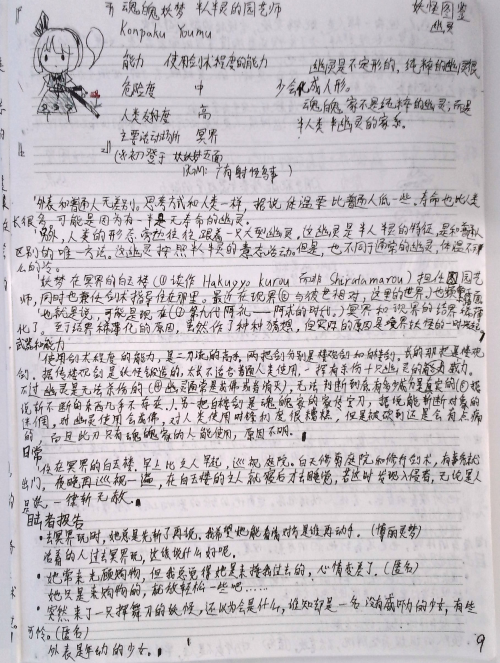 魂魄妖梦 半人半灵的园艺师
Konpaku Youmu
妖怪图鉴
幽灵
能力 使用剑术程度的能力
危险度 中
人类友好度 高
主要活动场所 冥界
幽灵是不定形的,纯粹的幽灵很
少会化成人形。
魂魄家不是纯粹的幽灵,而是
半人类半幽灵的家系。
(初)登于 妖妖梦五面
BGM:广有射怪鸟事
外表和普通人无差别。思考方式和人类一样,据说体温要比普通人低一些。寿命也比人类
长很多,可能是因为有一半是无寿命的幽灵。
人类的形态旁边往往跟着一只大型幽灵,这幽灵是半人半灵的特征,是和普通人
区别的唯一方法。这幽灵按照半人半灵的意志活动。但是,也不同于通常的幽灵,体温不
么的冷。
妖梦在冥界的白玉楼(①读作Hakugyo kurou而非Shiratamarou)担任园艺
师,同时也兼任剑术指导住在那里。最近在现界(②与彼岸相对,这里的世界)也频繁
也就是说,可能是现在(③第九代阿礼——阿求的时代)冥界和现界的结界薄
化了。至于结界稀薄化的原因,虽然作了种种猜想,但实际的原因是境界妖怪的一时兴起
武器和能力
使用剑术程度的能力,是二刀流的高手,两把剑分别是楼观剑和白楼剑。长的那把是楼观
剑。据传楼观剑是妖怪锻造的,太长不适合普通人类使用,一挥有杀伤十只幽灵的威力。
不过幽灵是无法杀伤的(④幽灵通常是成佛或者消灭),无法判断到底有多少威力是真实的(⑤据
说斩不断的东西几乎不存在。)另一把白楼剑是魂魄家的家传宝刀,据说能斩断对象的
迷惘,对幽灵使用会成佛,对人类使用时锋利度很糟糕,但是被砍到还是会有点痛
的,而且此刀只有魂魄家的人能使用,原因不明。
日常
住在冥界的白玉楼,早上比主人早起,巡视庭院。白天修剪庭院和修行剑术,有事情就
出门,夜晚再巡视一遍,在白玉楼的主人就寝后才去睡觉,若这时发现入侵者,无论是人
是妖,一律斩无赦。
目击者报告
·去冥界玩时,她总是先斩了再说,我希望她能看清对方是谁再动手。(博丽灵梦)
活着的人过去冥界玩,这该说什么好呢。
·她常来光顾购物,但我总觉得她是来接我过去的,心情变差了。(匿名)
她只是来购物的,就放轻松一些吧……
·突然来了一只挥舞刀的妖怪,还以为会是什么,谁知却是一名没有威吓力的少女,有些
可怜。(匿名)
外表是年幼的少女。
9